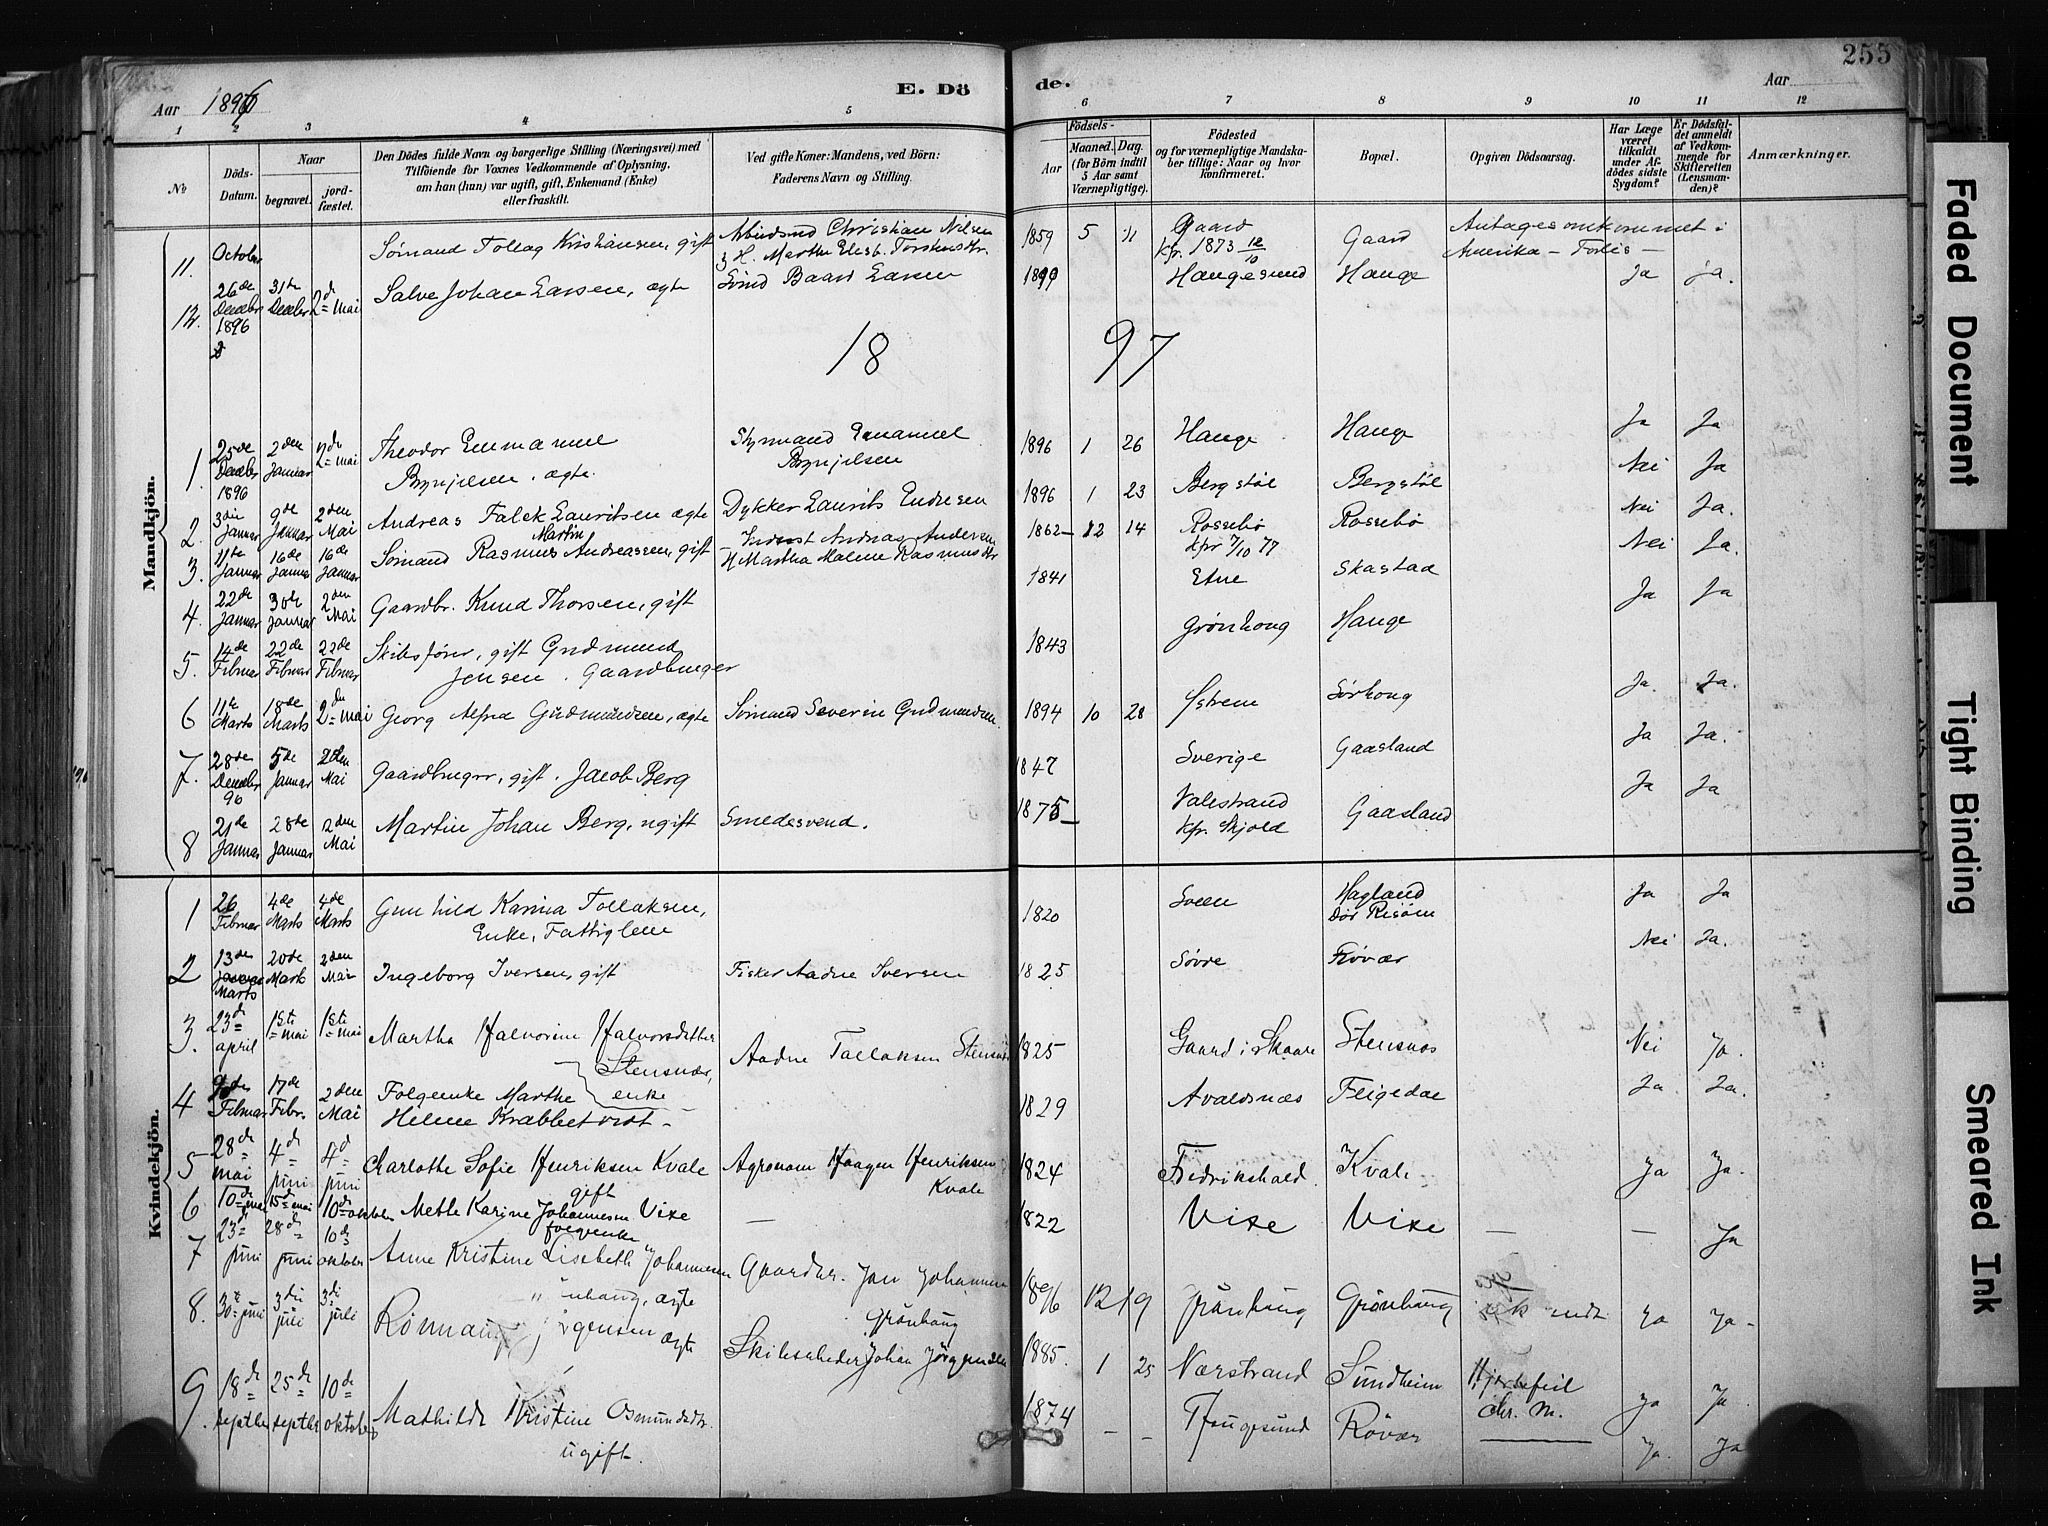 255
Aar 1896
E. Dö
de.
Aar
1 2 3 4 5
6 7 8 9 10 11 12
No
Döds-
Datum.
Naar
begravet.
jord-
fæstet.
Den Dödes fulde Navn og borgerlige Stilling (Næringsvei) med
Tilföiende for Voxnes Vedkommende af Oplysning,
om han (hun) var ugift, gift, Enkemand (Enke)
eller fraskilt.
Ved gifte Koner: Mandens, ved Börn:
Faderens Navn og Stilling.
Födsels-
Aar
Maaned. Dag.
(for Börn indtil
5 Aar samt
Værnepligtige).
Födested
og for værnepligtige Mandska-
ber tillige: Naar og hvor
konfirmeret.
Bopæl.
Opgiven Dödsaarsag.
Har Læge
været
tilkaldt
under Af-
dödes sidste
Sygdom?
Er Dödsfal-
det anmeldt
af Vedkom-
mende for
Skifteretten
(Lensman-
den)?
Anmærkninger.
11. October Sømand Tollag Kristiansen, gift Christian Nilsen
H. Marthe Elisb. Torstensdtr. 1859 5 11 Gaard
kfr. 1873 12/10 Gaard Antages omkommet i
Amerika - Forlis -
12. 26de Decebr 1896 31te Decebr 2d mai Salve Johan Larsen, ægte Sømd Baard Larsen Haugesund Hauge Ja ja.
18 97
Mandkjön.
1. 25de Decebr 1896 2den Januar 2d mai Theodor Emmanuel
Brynjelsen. ægte. Styrmand Emanuel
Brynjelsen 1896 1 26 Hauge Hauge Ja Ja
2. 3die Januar 9de Januar 2den Mai Andreas Falck Lauritsen ægte Dykker Laurits Endresen 1896 1 23 Bergstøl Bergstøl Nei Ja
3. 11te Januar 16de Januar 16de Januar Sømand Rasmus Martin Andreassen, gift Inderst Andreas Andersen
H Martha Malene Rasmusdtr 1862 12 14 Rossebø
kfr 7/10 77 Rossebø Nei Ja.
4. 22de Januar 30te Januar 2den Mai Gaardbr. Knud Thorsen, gift 1841 Etne Skastad Nei Ja.
5. 14de Februar 22de Februar 22de Februar Skibsfører, gift Gudmund
Jensen. Gaardbruger 1843 Grønhoug Hauge Ja Ja
6 11te Marts 18de Marts 2den mai Georg Alfred Gudmundsen, ægte Sømand Severin Gudmundsen 1894 10 28 Østrem Sørhoug Ja. Ja.
7. 28de Decebr 96 5de Januar 2den Mai Gaardbruger, gift. Jacob Berg 1847 Sverige Gaasland Ja Ja.
8 21de Januar 28de Januar 2den Mai Martin Johan Berg, ugift Smedesvend. 1875 Valestrand
kfr. Skjold Gaasland Ja Ja
Kvindekjön.
1 26 Februar 4de Marts 4de Marts Gunhild Karina Tollaksen,
Enke, Fattiglem 1820 Sveen Hagland
Risøen Ja Ja
2 13de Marts 20de Marts 2den Mai Ingeborg Iversen, gift Fisker Aadne Iversen 1825 Søvde Røvær Nei Ja.
3. 23d april 1ste mai 1ste mai Martha Halvorine Halvorsdatter
Stensnæs,
enke Aadne Tollaksen Stensnæs 1825 Gaard i Skaare Stensnæs Nei Ja.
4 Februar 17de Febr. 2den Mai Folgeenke Marthe
Helene Krabbetvedt - 1829 Avaldsnæs Feigedal Ja. Ja.
5 28d mai 4d juni 4d juni Charlotte Sofie Henriksen Kvale
gift Agronom Haagen Henriksen
Kvale 1824 Fredrikshald. Kvale Ja Ja.
6 10d mai 15d mai 10d oktober Mette Karine Johannesen Vixe
folgeenke — 1822 Vixe Vixe — — Ja
7 23d juni 28d juni 10d oktober Anne Kristine Lisebeth Johannesen
ægte Gaardbr. Jan Johannesen
Grønhaug 1896 12 19 Grønhaug Grønhaug Ja Ja-
8. 30te juni 3die juli 3die juli Jørgensen ægte Johan Jørgensen 1885. 1 25 Nærstrand Sundheim Hjertefeil
chr. M. Ja Ja
9. 18d septbr 25d septbr 10d oktober Mathilde Kristine Osmundsdtr.
ugift. 1874 - - Haugesund Røvær — Ja. Ja
Faded Document
Tight Binding
Smeared Ink